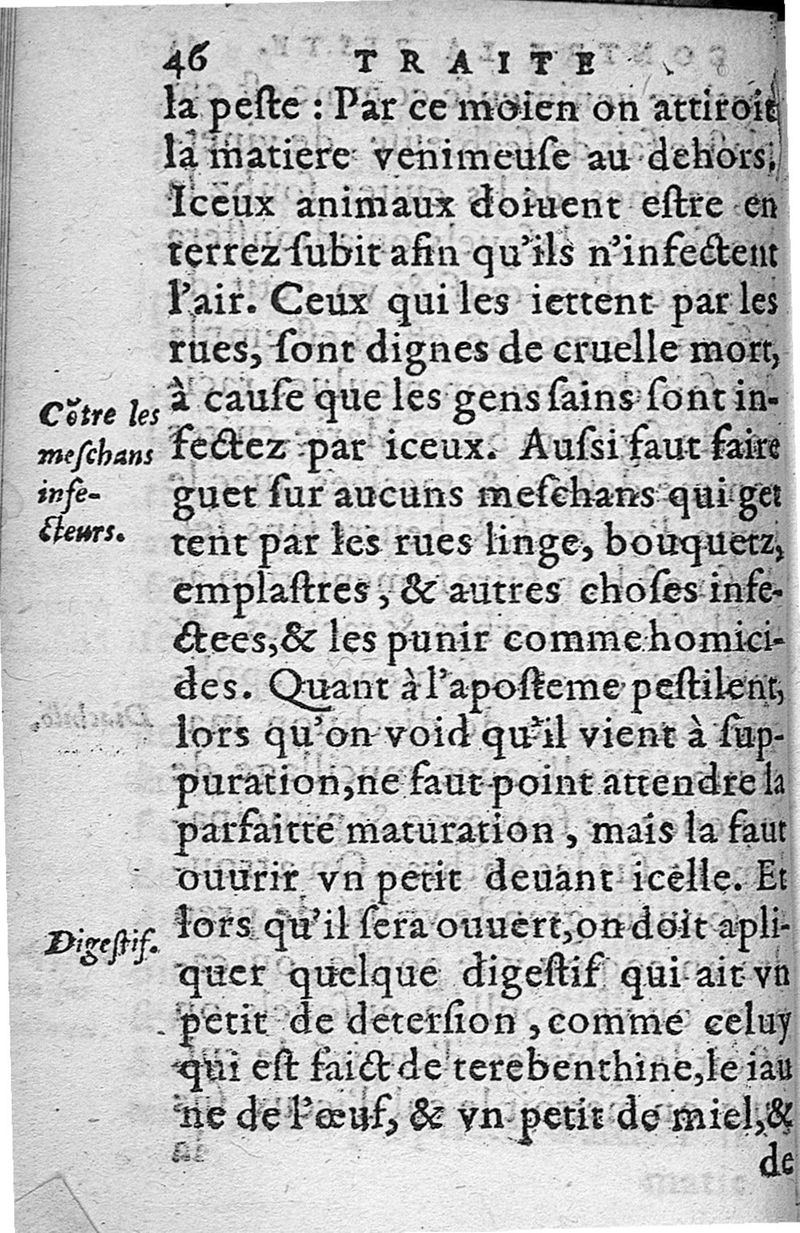 46 TRAITE
la peſte : Par ce moien on attiroit
la matiere venimeuſe au dehors.
Iceux animaux doiuent eſtre en
terrez ſubit afin qu'ils n'infectent
l'air. Ceux qui les iettent par les
rues, ſont dignes de cruelle mort,
à cauſe que les gens ſains ſont in-
Cõtre les
meſchans
infe-
cteurs.
fectez par iceux. Auſsi faut faire
guet ſur aucuns meſchans qui get
tent par les rues linge, bouquetz,
emplaſtres, & autres choſes infe-
ctees, & les punir comme homici-
des. Quant à l'apoſteme peſtilent,
lors qu'on void qu'il vient à ſup-
puration, ne faut point attendre la
parfaitte maturation, mais la faut
ouurir vn petit deuant icelle. Et
Digeſtif.
lors qu'il ſera ouuert, on doit apli-
quer quelque digeſtif qui ait vn
petit de deterſion, comme celuy
qui eſt faict de terebenthine, le iau
ne de l'œuf, & vn petit de miel, &
de